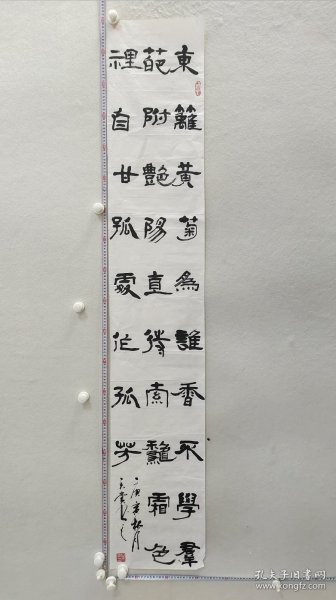 東籬黃菊為誰香不學羣
葩附艷陽直待素龝霜色
裡自甘孤處作孤芳
庚寅秋月
孔夫子旧书网